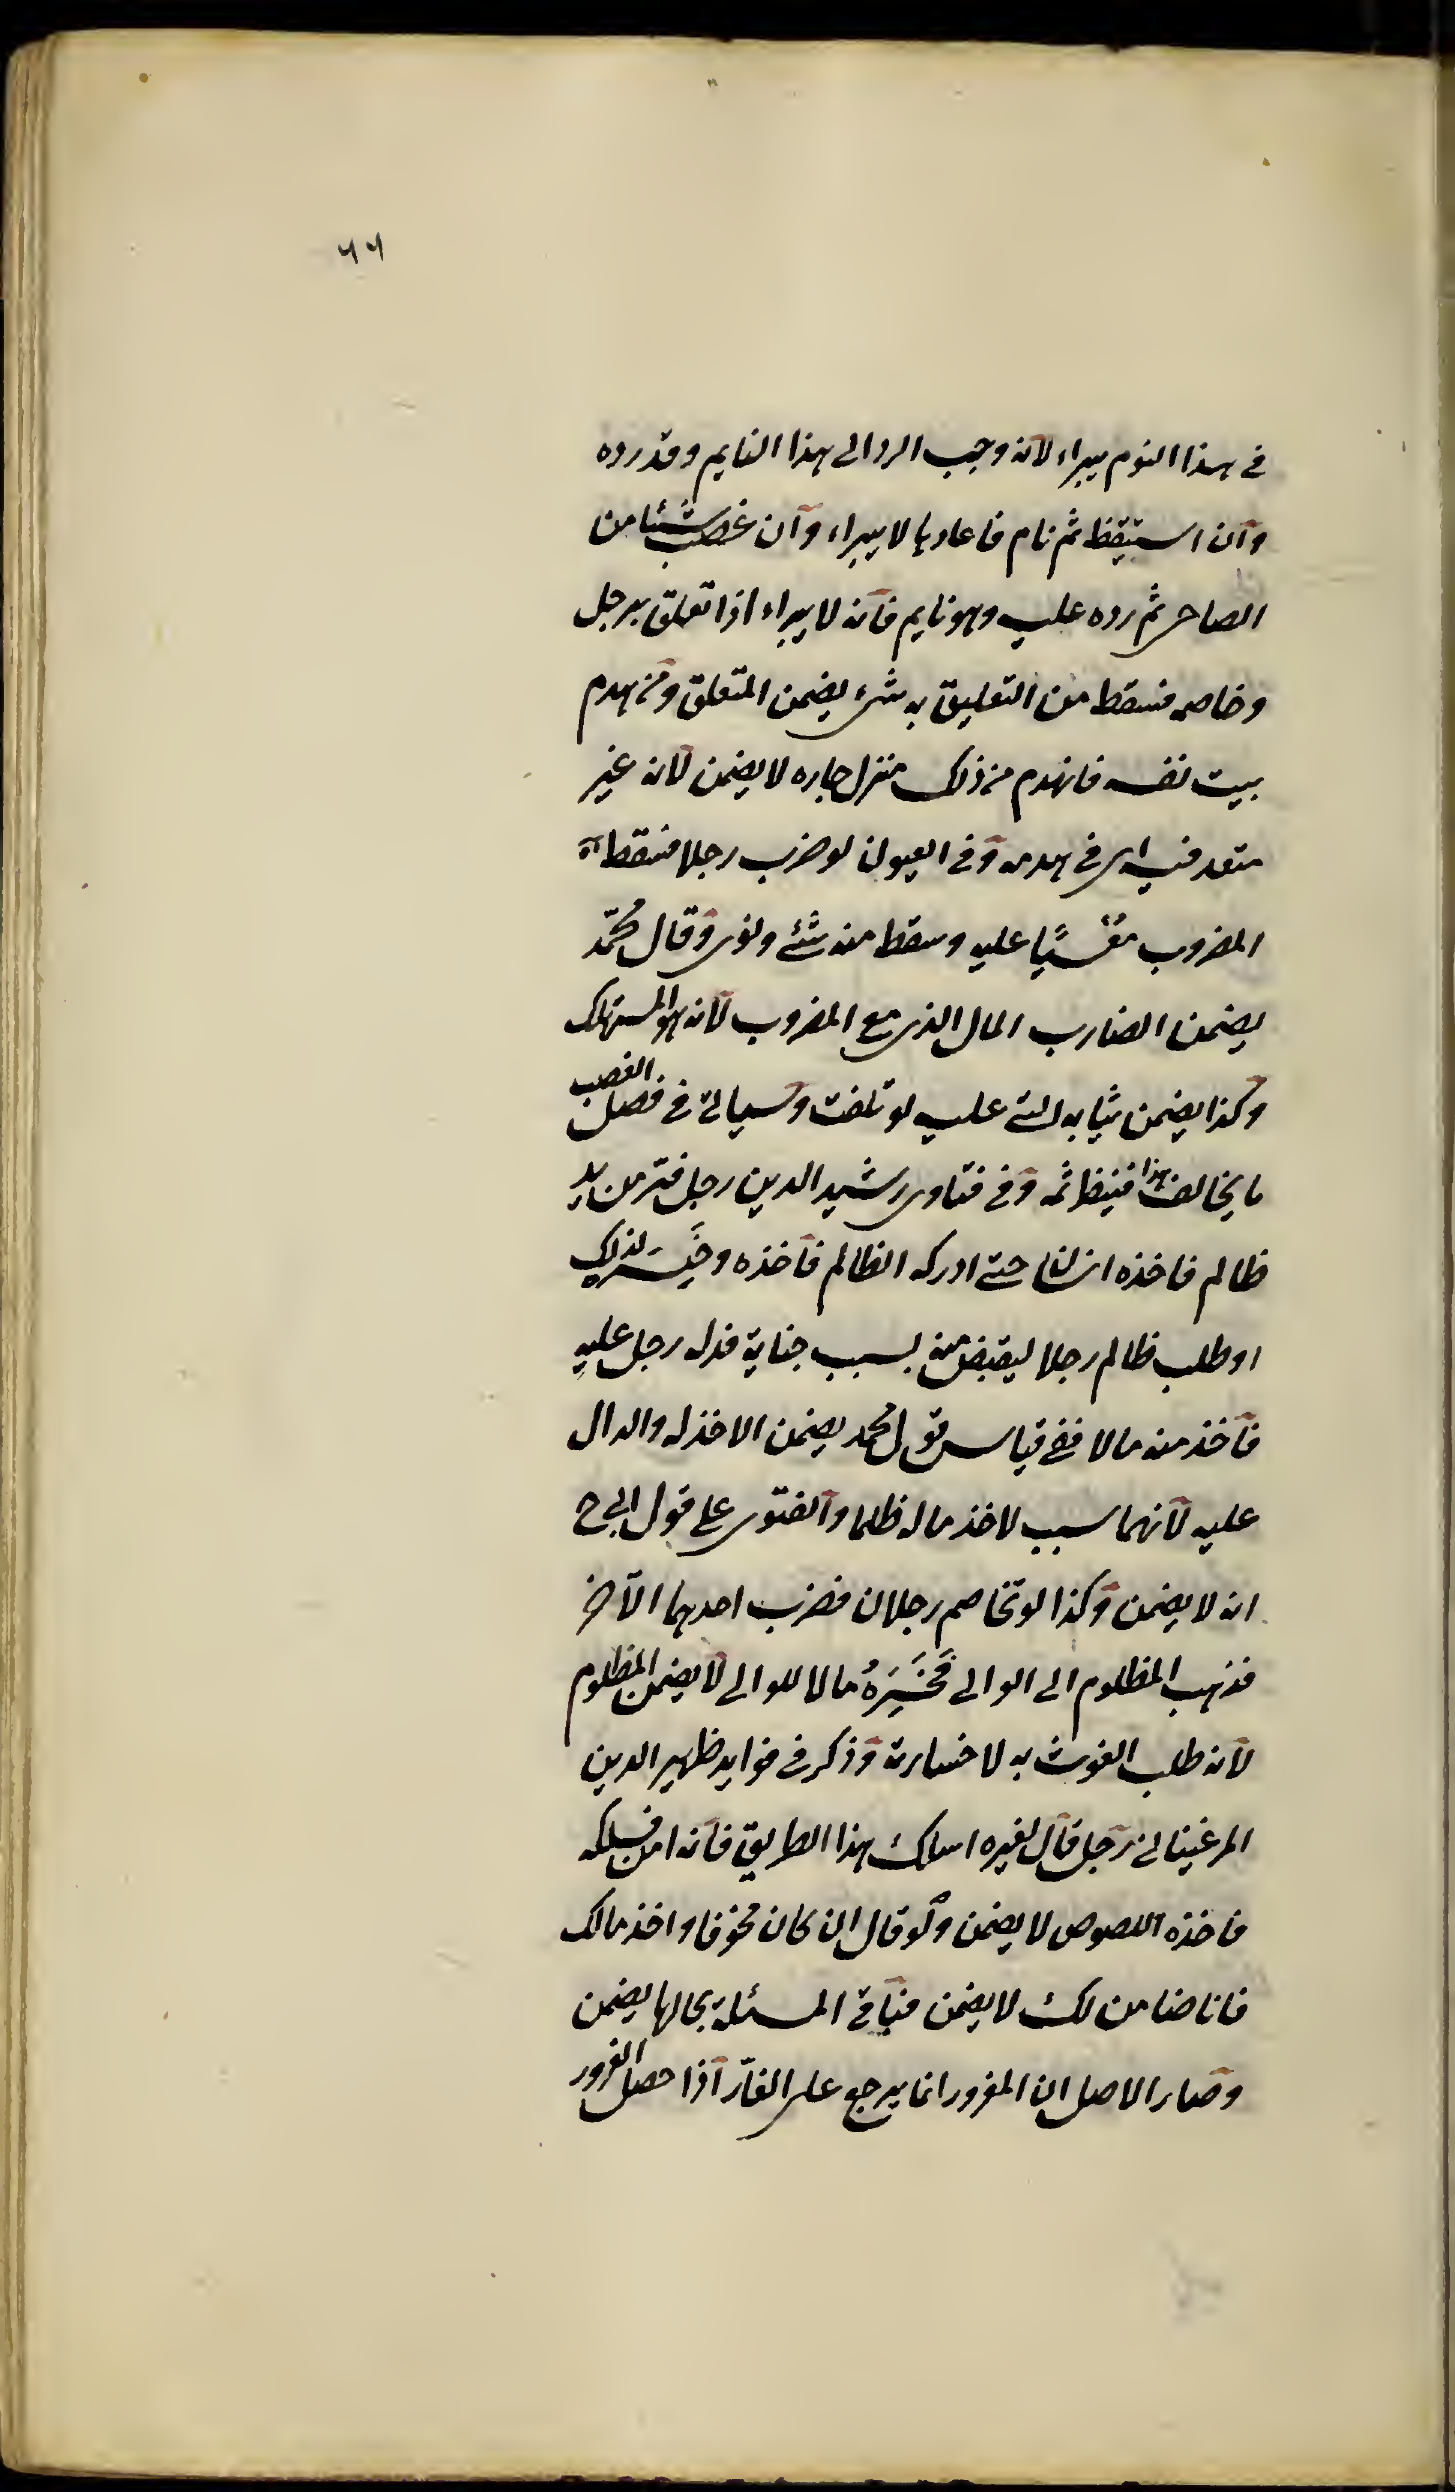 ٦٦
في هذا النوم يبراء لانه وجب الرد الى هذا النايم وقد رده
وان استيقظ ثم نام فاعادها لا يبراء وان غصب شئا من
الصاحي ثم رده عليه وهو نايم فانه لا يبراء اذا تعلق برجل
وخاصمه فسقط من التعليق به شيء يضمن المتعلق ومن هدم
بيت نفسه فانهدم من ذلك منزل جاره لا يضمن لانه غير
متعد فيه اي في هدمه وفي العيون لو ضرب رجلا فسقط
المضروب مغشيًا عليه وسقط منه شئ وتوى وقال محمّد
يضمن الضارب المال الذي مع المضروب لانه هو المستهلك
وكذا يضمن ثيابه التي عليه لو تلفت وسياتي في فصل الغصب
ما يخالف هذا فينظر ثمه وفي فتاوى رشيد الدين رجل فر من يد
ظالم فاخذه انسان حتى ادركه الظالم فاخذه وخَسّر لذلك
او طلب ظالم رجلا ليقبض منه بسبب جناية فدله رجل عليه
فاخذ منه مالا ففي قياس قول محمد يضمن الاخذ له والدال
عليه لانهما سبب لاخذ ماله ظلما والفتوى على قول ابي ح
انه لا يضمن وكذا لو تخاصم رجلان فضرب احدهما الآخر
فذهب المظلوم الى الوالي فَخَسَّرَهُ مالا للوالي لا يضمن المظلوم
لانه طلب الغوث به لا خسارته وذكر في فوايد ظهير الدين
المرغيناني رجل قال لغيره اسلك هذا الطريق فانه امن فسلكه
فاخذه اللصوص لا يضمن ولو قال ان كان مخوفا واخذ مالك
فانا ضامن لك لا يضمن فباقي المسئلة بحالها يضمن
وصار الاصل ان المغرور انما يرجع على الغارّ اذا حصل الغرور